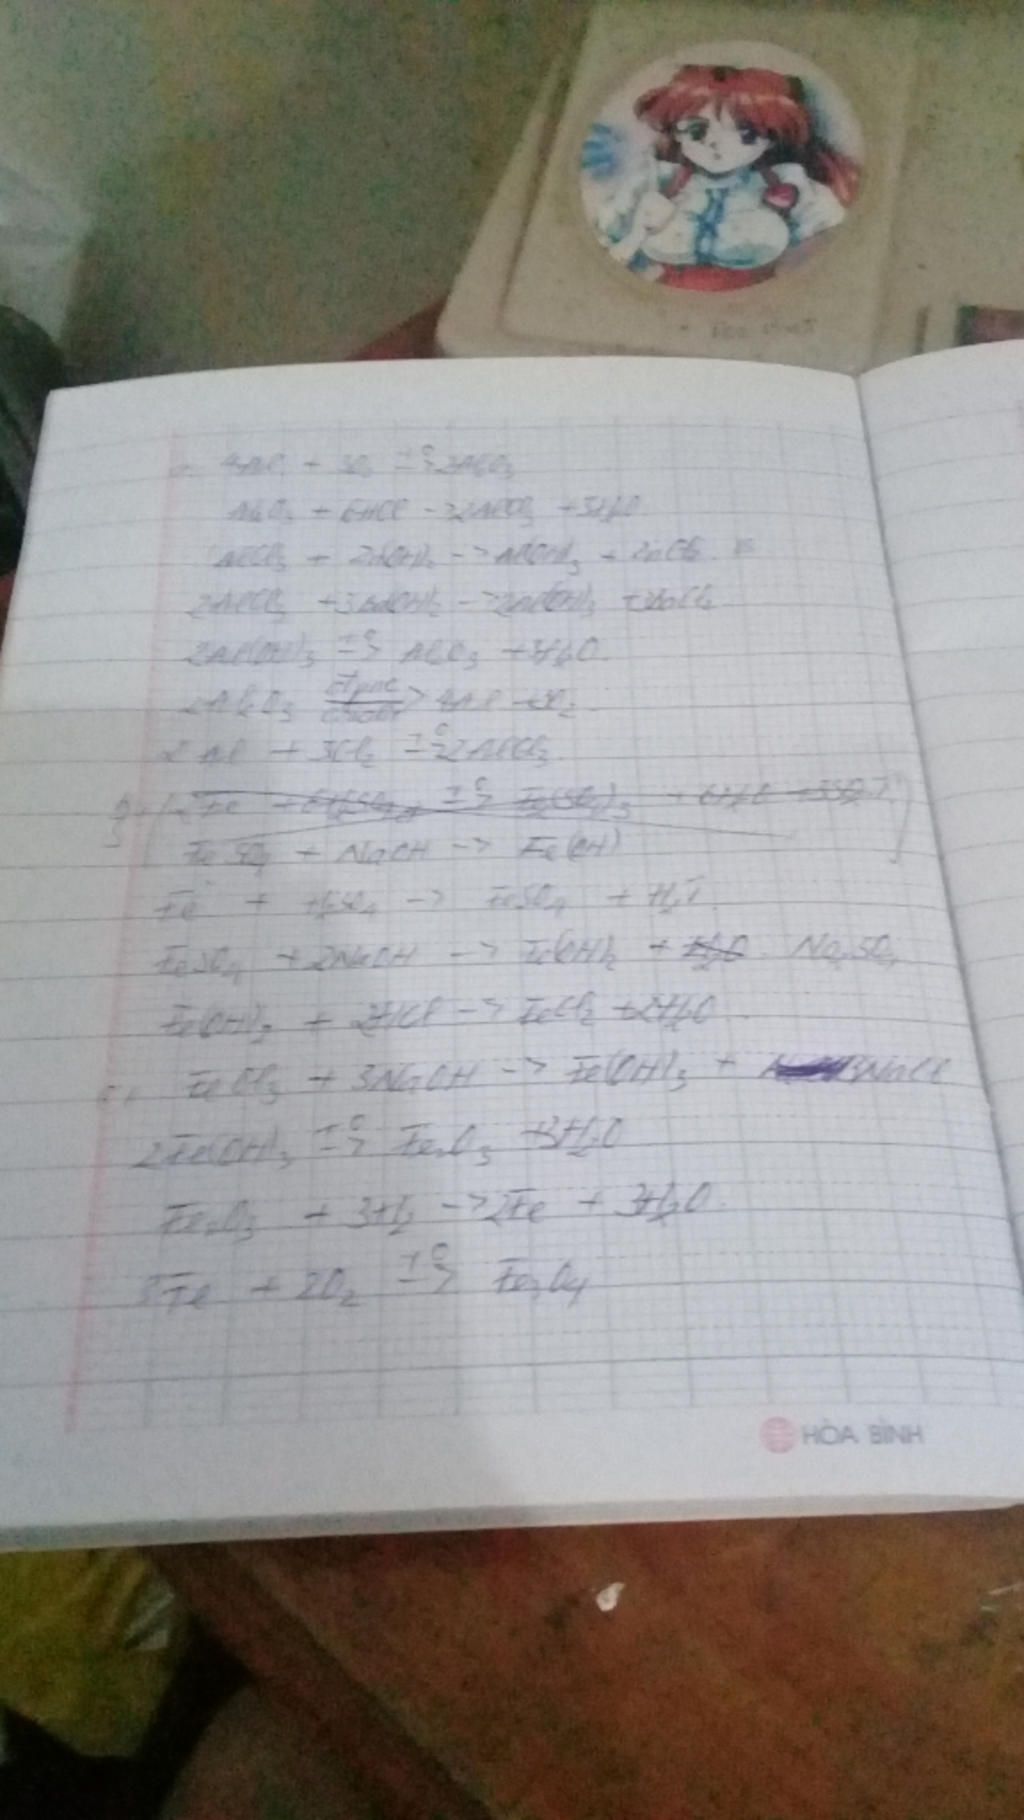 4Al + 3O₂ -t°-> 2Al₂O₃
Al₂O₃ + 6HCl -> 2AlCl₃ + 3H₂O
AlCl₃ + Zn(OH)₂ -> Al(OH)₃ + ZnCl₂
2AlCl₃ + 3Ba(OH)₂ -> 2Al(OH)₃ +
2Al(OH)₃ -t°-> Al₂O₃ + 3H₂O
2Al₂O₃ -đpnc/criolit-> 4Al + 3O₂
2Al + 3Cl₂ -t°-> 2AlCl₃
2Fe + 6H₂SO₄ -t°-> Fe₂(SO₄)₃ + 6H₂O + 3SO₂↑
FeSO₄ + NaOH -> Fe(OH)
Fe + H₂SO₄ -> FeSO₄ + H₂↑
FeSO₄ + 2NaOH -> Fe(OH)₂ + H₂O Na₂SO₄
Fe(OH)₂ + 2HCl -> FeCl₂ + 2H₂O
c, FeCl₃ + 3NaOH -> Fe(OH)₃ + 3NaCl
2Fe(OH)₃ -t°-> Fe₂O₃ + 3H₂O
Fe₂O₃ + 3H₂ -> 2Fe + 3H₂O
3Fe + 2O₂ -t°-> Fe₃O₄
HÒA BÌNH